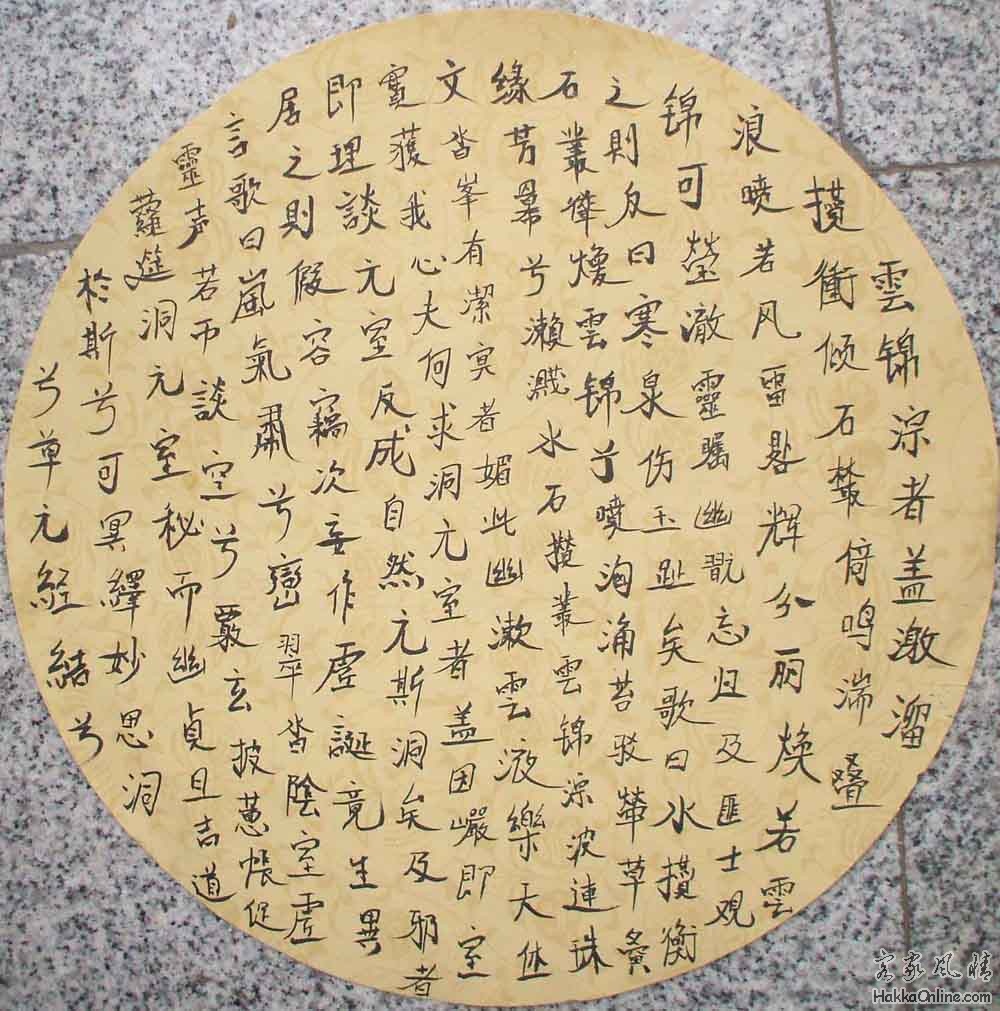 雲锦淙者盖激溜
攢衝倾石叢倚鸣湍疊
浪暁若风雷辉分丽焕若雲
锦可瑩澈靈矚幽翫忘归及匪士观
之則反曰寒泉伤玉趾矣歌曰水攢衡
石叢煖雲锦兮噴洶涌苔驳犖草夤
缘芳羃兮瀬濺水石攅叢雲锦淙波連珠
文沓峯有潔冥者媚此幽漱雲液樂天休
實獲我心夫何求洞元室者盖因巖即室
即理談元室反成自然元斯洞矣及邪者
居之則假容竊次妄作虚誕竟生異
言歌曰嵐氣肅兮巒翠沓陰室虚
靈声若而談空兮覈玄披蕙帳促
蘿筵洞元室秘而幽貞且吉道
於斯兮可冥繹妙思洞
兮草元經結兮
客家风情
HakkaOnline.com